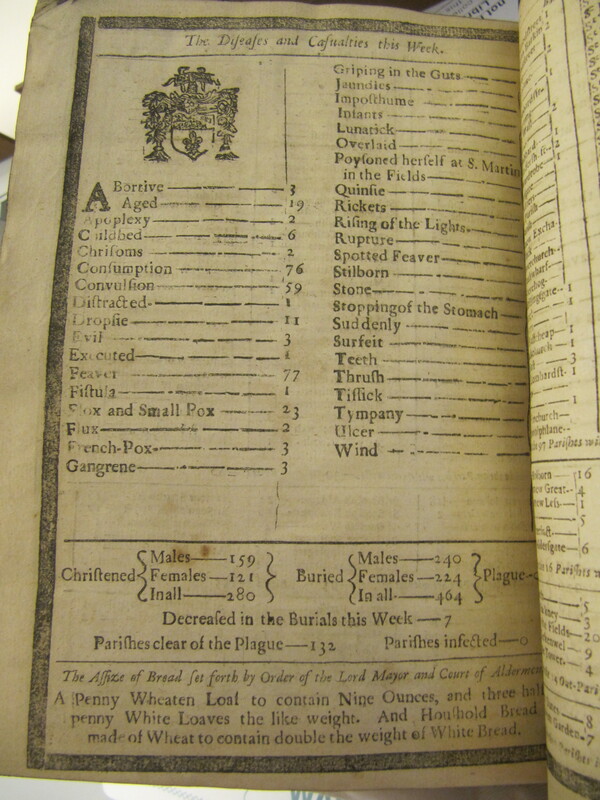 The Diſeaſes and Caſualties this Week.
ABortive 3
Aged 19
Apoplexy 2
Childbed 6
Chriſoms 2
Conſumption 76
Convulſion 59
Diſtracted 1
Dropſie 11
Evil 3
Executed 1
Feaver 77
Fiſtula 1
Flox and Small Pox 23
Flux 2
French-Pox 3
Gangrene 3
Griping in the Guts
Jaundies
Impoſthume
Infants
Lunatick
Overlaid
Poyſoned herſelf at S. Martin
in the Fields
Quinſie
Rickets
Riſing of the Lights
Rupture
Spotted Feaver
Stilborn
Stone
Stopping of the Stomach
Suddenly
Surfeit
Teeth
Thruſh
Tiſſick
Tympany
Ulcer
Wind
Chriſtened
Males 159
Females 121
In all 280
Buried
Males 240
Females 224
In all 464
Plague
Decreaſed in the Burials this Week 7
Pariſhes clear of the Plague 132 Pariſhes infected 0
The Aſſize of Bread ſet forth by Order of the Lord Mayor and Court of Aldermen
A Penny Wheaten Loaf to contain Nine Ounces, and three half
penny White Loaves the like weight. And Houſhold Bread
made of Wheat to contain double the weight of White Bread.